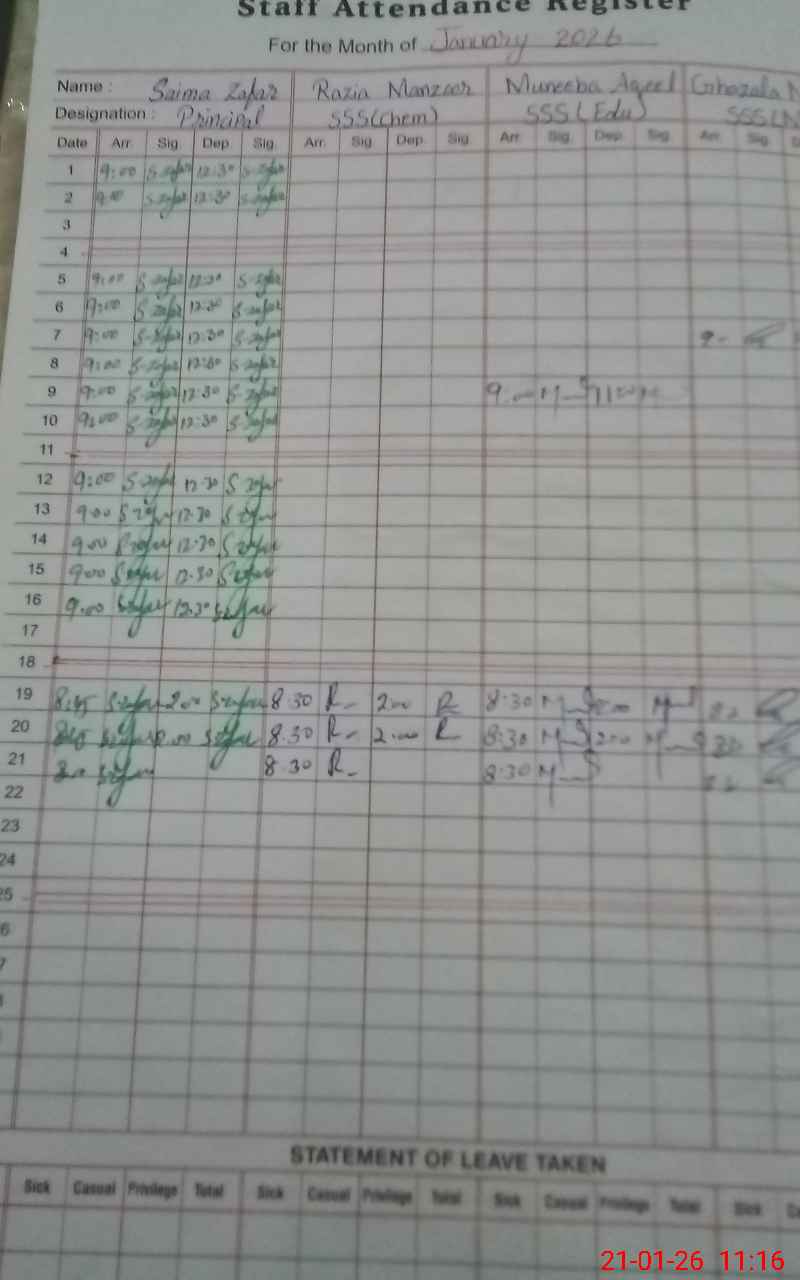 Staff Attendance Register
For the Month of January 2026
Name : Saima Zafar Razia Manzoor Muneeba Aqeel Ghazala
Designation : Principal SSS(Chem) SSS(Edu) SSS(
Date Arr. Sig. Dep. Sig. Arr. Sig. Dep. Sig. Arr. Sig. Dep. Sig. Arr. Sig.
1 9:00 S.Zafar 12:30 S.Zafar
2 9:00 S.Zafar 12:30 S.Zafar
3
4
5 9:00 S.Zafar 12:30 S.Zafar
6 9:00 S.Zafar 12:30 S.Zafar
7 9:00 S.Zafar 12:30 S.Zafar
8 9:00 S.Zafar 12:30 S.Zafar
9 9:00 S.Zafar 12:30 S.Zafar 9:00
10 9:00 S.Zafar 12:30 S.Zafar
11
12 9:00 S.Zafar 12:30 S.Zafar
13 9:00 S.Zafar 12:30 S.Zafar
14 9:00 S.Zafar 12:30 S.Zafar
15 9:00 S.Zafar 12:30 S.Zafar
16 9:00 S.Zafar 12:30 S.Zafar
17
18
19 8:45 S.Zafar 2:00 S.Zafar 8:30 R 2:00 R 8:30
20 S.Zafar S.Zafar 8:30 R 2:00 R 8:30
21 S.Zafar 8:30 R 8:30
22
23
24
25
6
7
STATEMENT OF LEAVE TAKEN
Sick Casual Privilege Total Sick Casual Privilege Total Sick Casual Privilege Total Sick
21-01-26 11:16